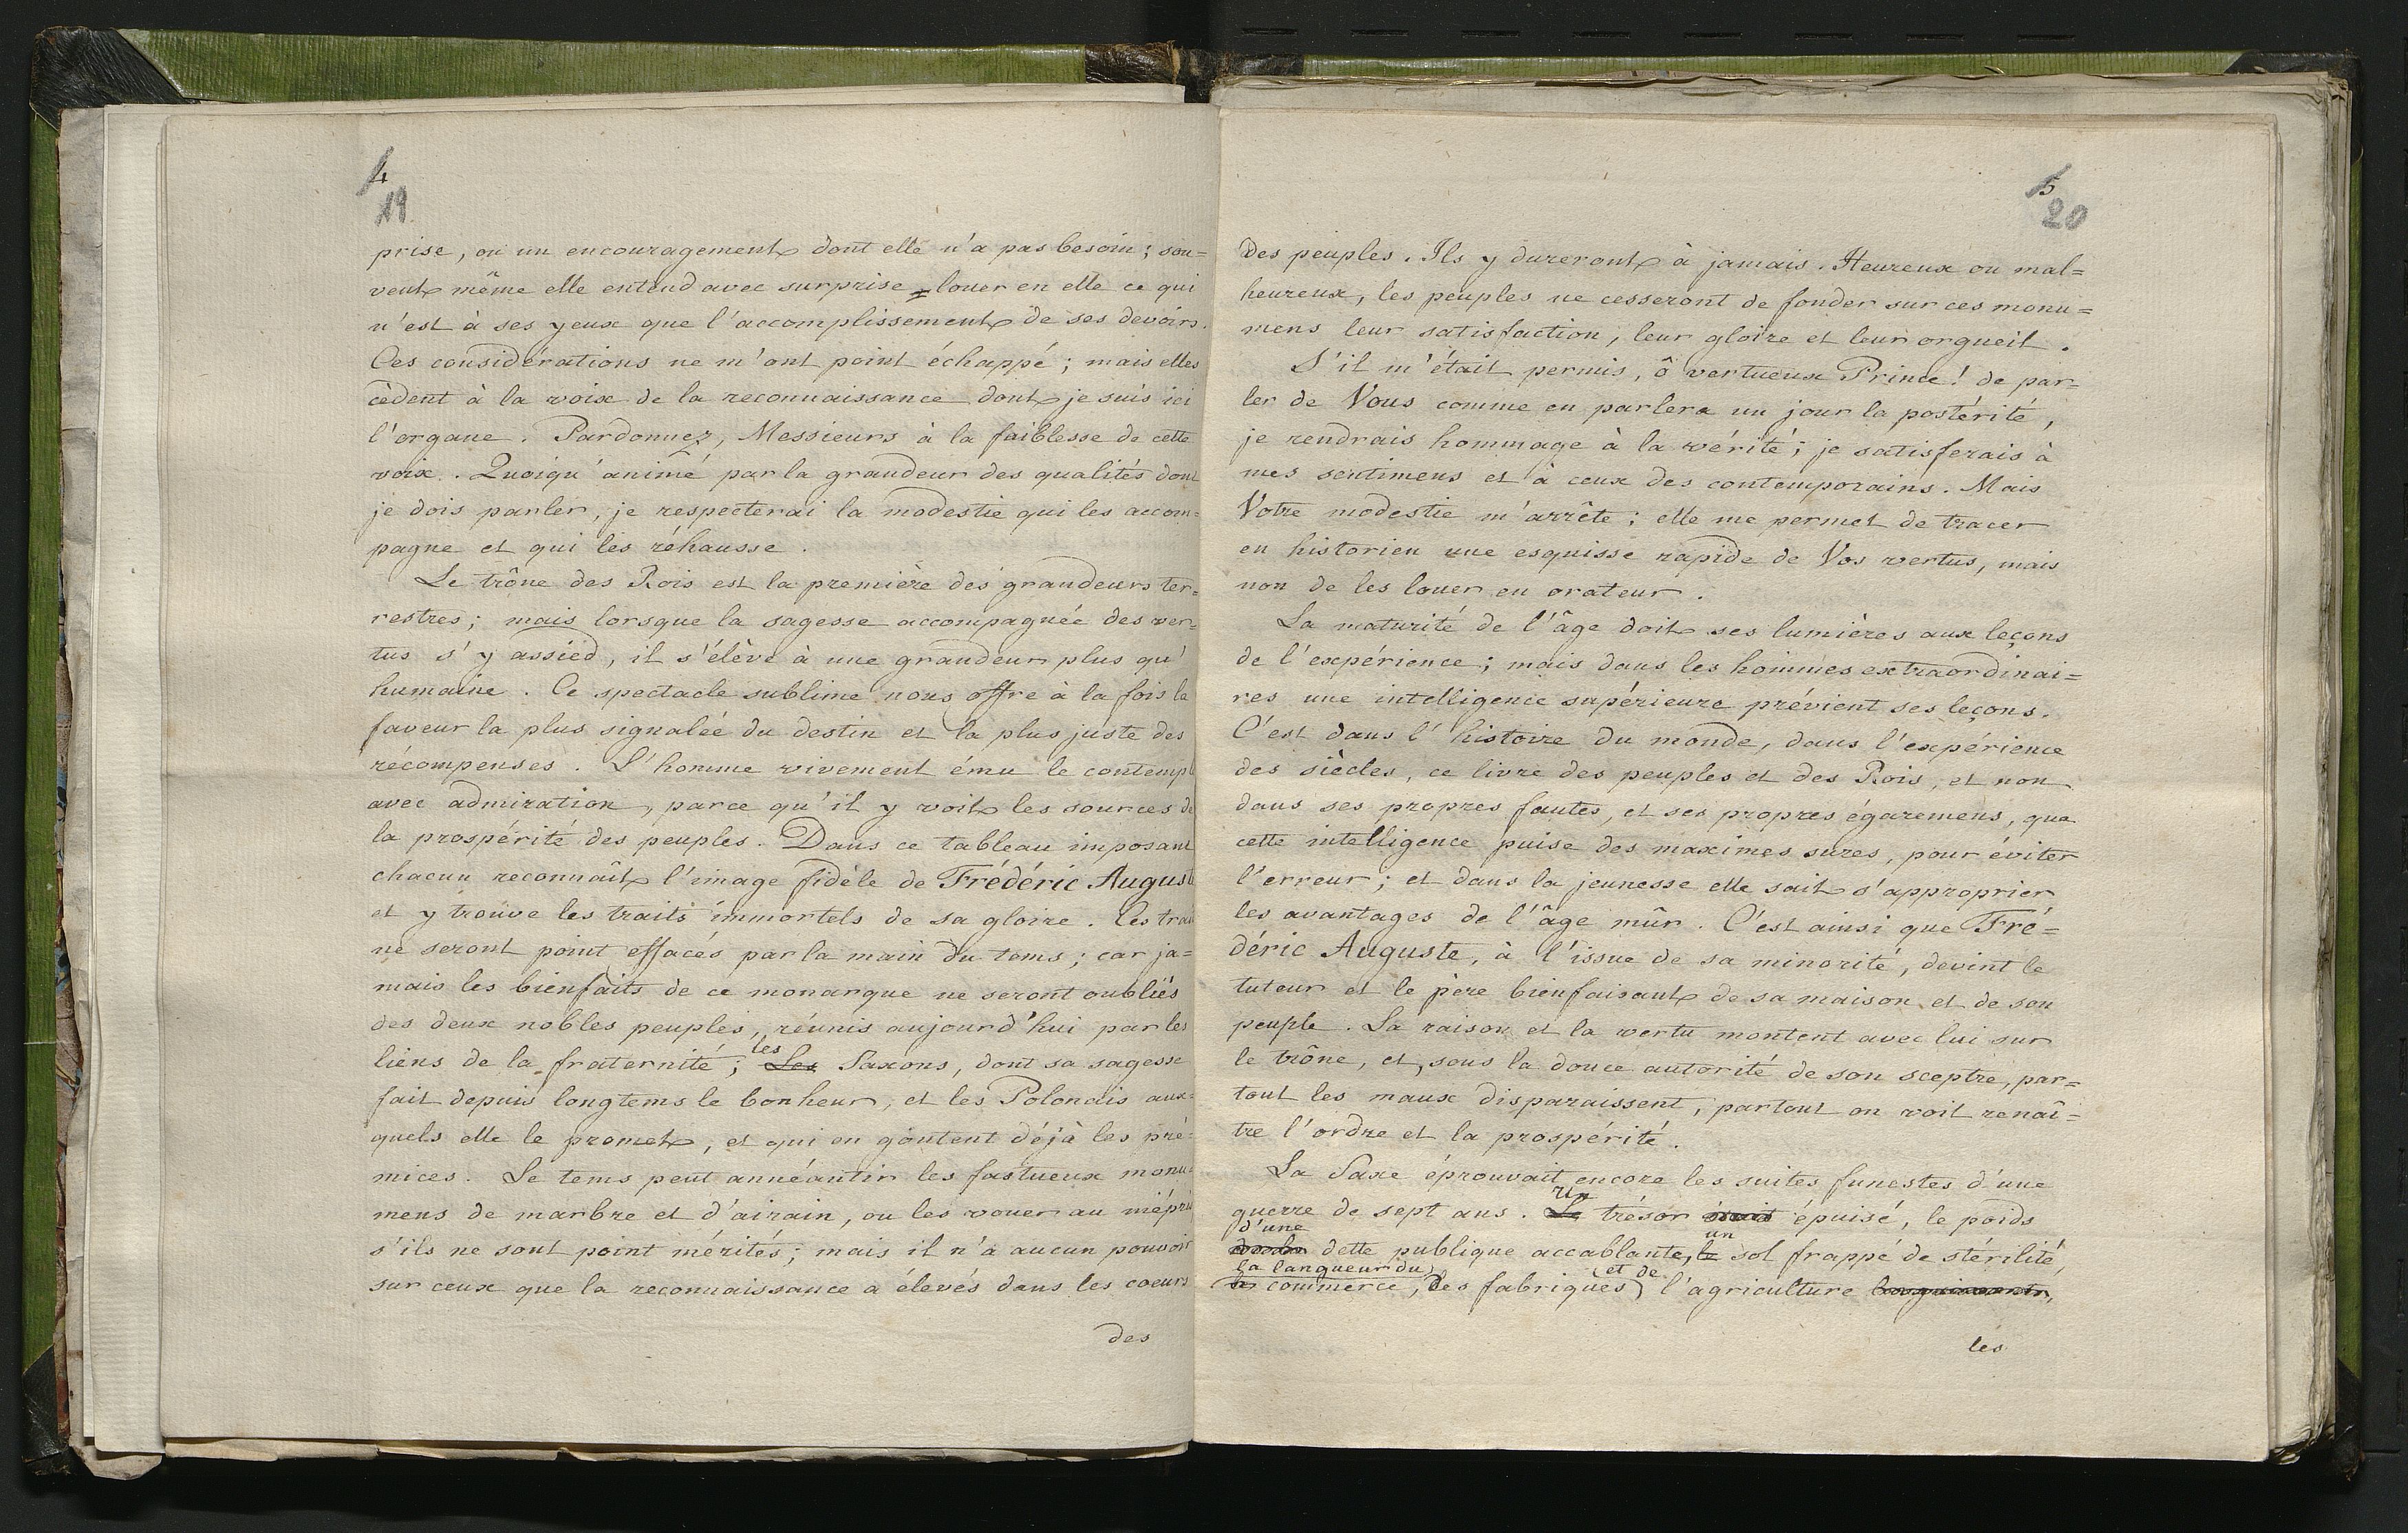 4
19
prise, ou un encouragement dont elle n'a pas besoin; sou=
vent même elle entend avec surprise louer en elle ce qui
n'est à ses yeux que l'accomplissement de ses devoirs.
Ces considérations ne m'ont point échappé; mais elles
cèdent à la voix de la reconnaissance dont je suis ici
l'organe. Pardonnez, Messieurs à la faiblesse de cette
voix. Quoiqu'animé par la grandeur des qualités dont
je dois parler, je respecterai la modestie qui les accom=
pagne et qui les réhausse.
Le trône des Rois est la première des grandeurs ter=
restres; mais lorsque la sagesse accompagnée des ver=
tus s'y assied, il s'élève à une grandeur plus qu'
humaine. Ce spectacle sublime nous offre à la fois la
faveur la plus signalée du destin et la plus juste des
récompenses. L'homme vivement ému le contempl
avec admiration, parce qu'il y voit les sources de
la prospérité des peuples. Dans ce tableau imposant
chacun reconnaît l'image fidèle de Frédéric Auguste
et y trouve les traits immortels de sa gloire. Ces trai
ne seront point effacés par la main du tems; car ja=
mais les bienfaits de ce monarque ne seront oubliés
des deux nobles peuples, réunis aujourd'hui par les
les
liens de la fraternité; Les Saxons, dont sa sagesse
fait depuis longtems le bonheur, et les Polonais aux=
quels elle le promet, et qui en goutent déjà les pré=
mices. Le tems peut annéantir les fastueux monu=
mens de marbre et d'airain, ou les vouer au mépris
s'ils ne sont point mérités; mais il n'a aucun pouvoir
sur ceux que la reconnaissance a élevés dans les coeurs
des
5
20
des peuples. Ils y dureront à jamais. Heureux ou mal=
heureux, les peuples ne cesseront de fonder sur ces monu=
mens leur satisfaction, leur gloire et leur orgueil.
S'il m'était permis, ô vertueux Prince! de par=
ler de Vous comme en parlera un jour la postérité,
je rendrais hommage à la vérité; je satisferais à
mes sentimens et à ceux des contemporains. Mais
Votre modestie m'arrête; elle me permet de tracer
en historien une esquisse rapide de Vos vertus, mais
non de les louer en orateur.
La maturité de l'âge doit ses lumières aux leçons
de l'expérience; mais dans les hommes extraordinai=
res une intelligence supérieure prévient ses leçons.
C'est dans l'histoire du monde, dans l'expérience
des siècles, ce livre des peuples et des Rois, et non
dans ses propres fautes, et ses propres égaremens, que
cette intelligence puise des maximes sures, pour éviter
l'erreur; et dans la jeunesse elle sait s'approprier
les avantages de l'âge mûr. C'est ainsi que Fré=
déric Auguste, à l'issue de sa minorité, devint le
tuteur et le père bienfaisant de sa maison et de son
peuple. La raison et la vertu montent avec lui sur
le trône, et, sous la douce autorité de son sceptre, par=
tout les maux disparaissent, partout on voit renaî=
tre l'ordre et la prospérité.
La Saxe éprouvait encore les suites funestes d'une
Un
guerre de sept ans. Le trésor épuisé, le poids
d'une un
dette publique accablante, le sol frappé de stérilité,
la langueur du et de
le commerce, des fabriques, l'agriculture
les